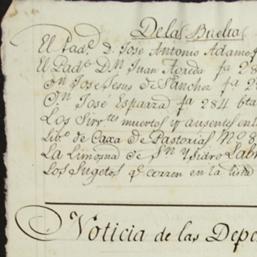 De la Buelta
El Pad.e d. Jose Antonio Adame
El Pad.e D.n Juan Aoreda fa 28
D.n Jose Jesus de Sanchez fa 2
D.n Jose Esparza fa 284 6ta
Los Sirv.tes muertos y ausentes en
Lib.o de Caxa de Pastorias No 8
La Limosna de S.n Ysidro Lab
Los Sugetos q.e corren en la lista
Noticia de las Depe